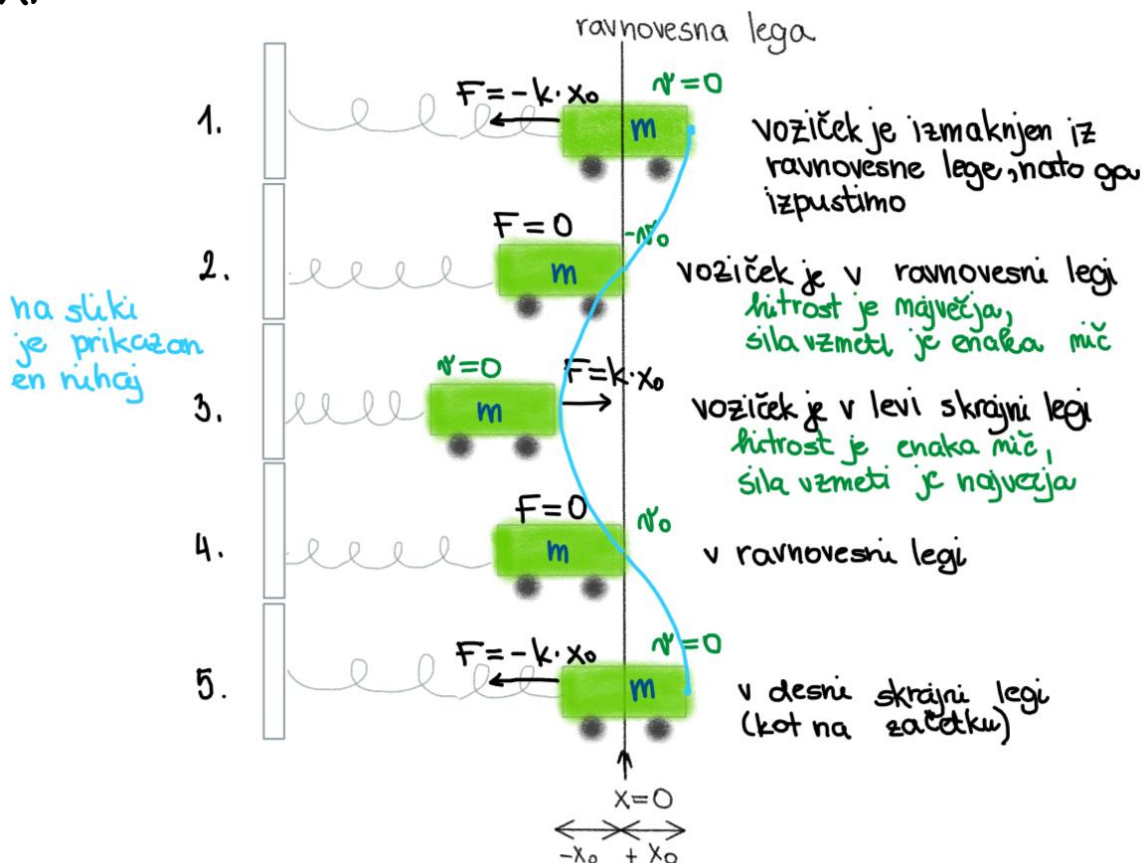 ravnovesna lega
1.
F=-k·x₀
v=0
m
voziček je izmaknjen iz
ravnovesne lege, nato ga
izpustimo
2.
F=0
-v₀
m
voziček je v ravnovesni legi
hitrost je največja,
sila vzmeti je enaka nič
na sliki
je prikazan
en nihaj
3.
v=0
F=k·x₀
m
voziček je v levi skrajni legi
hitrost je enaka nič,
sila vzmeti je največja
4.
F=0
v₀
m
v ravnovesni legi
5.
F=-k·x₀
v=0
m
v desni skrajni legi
(kot na začetku)
x=0
-x₀ + x₀